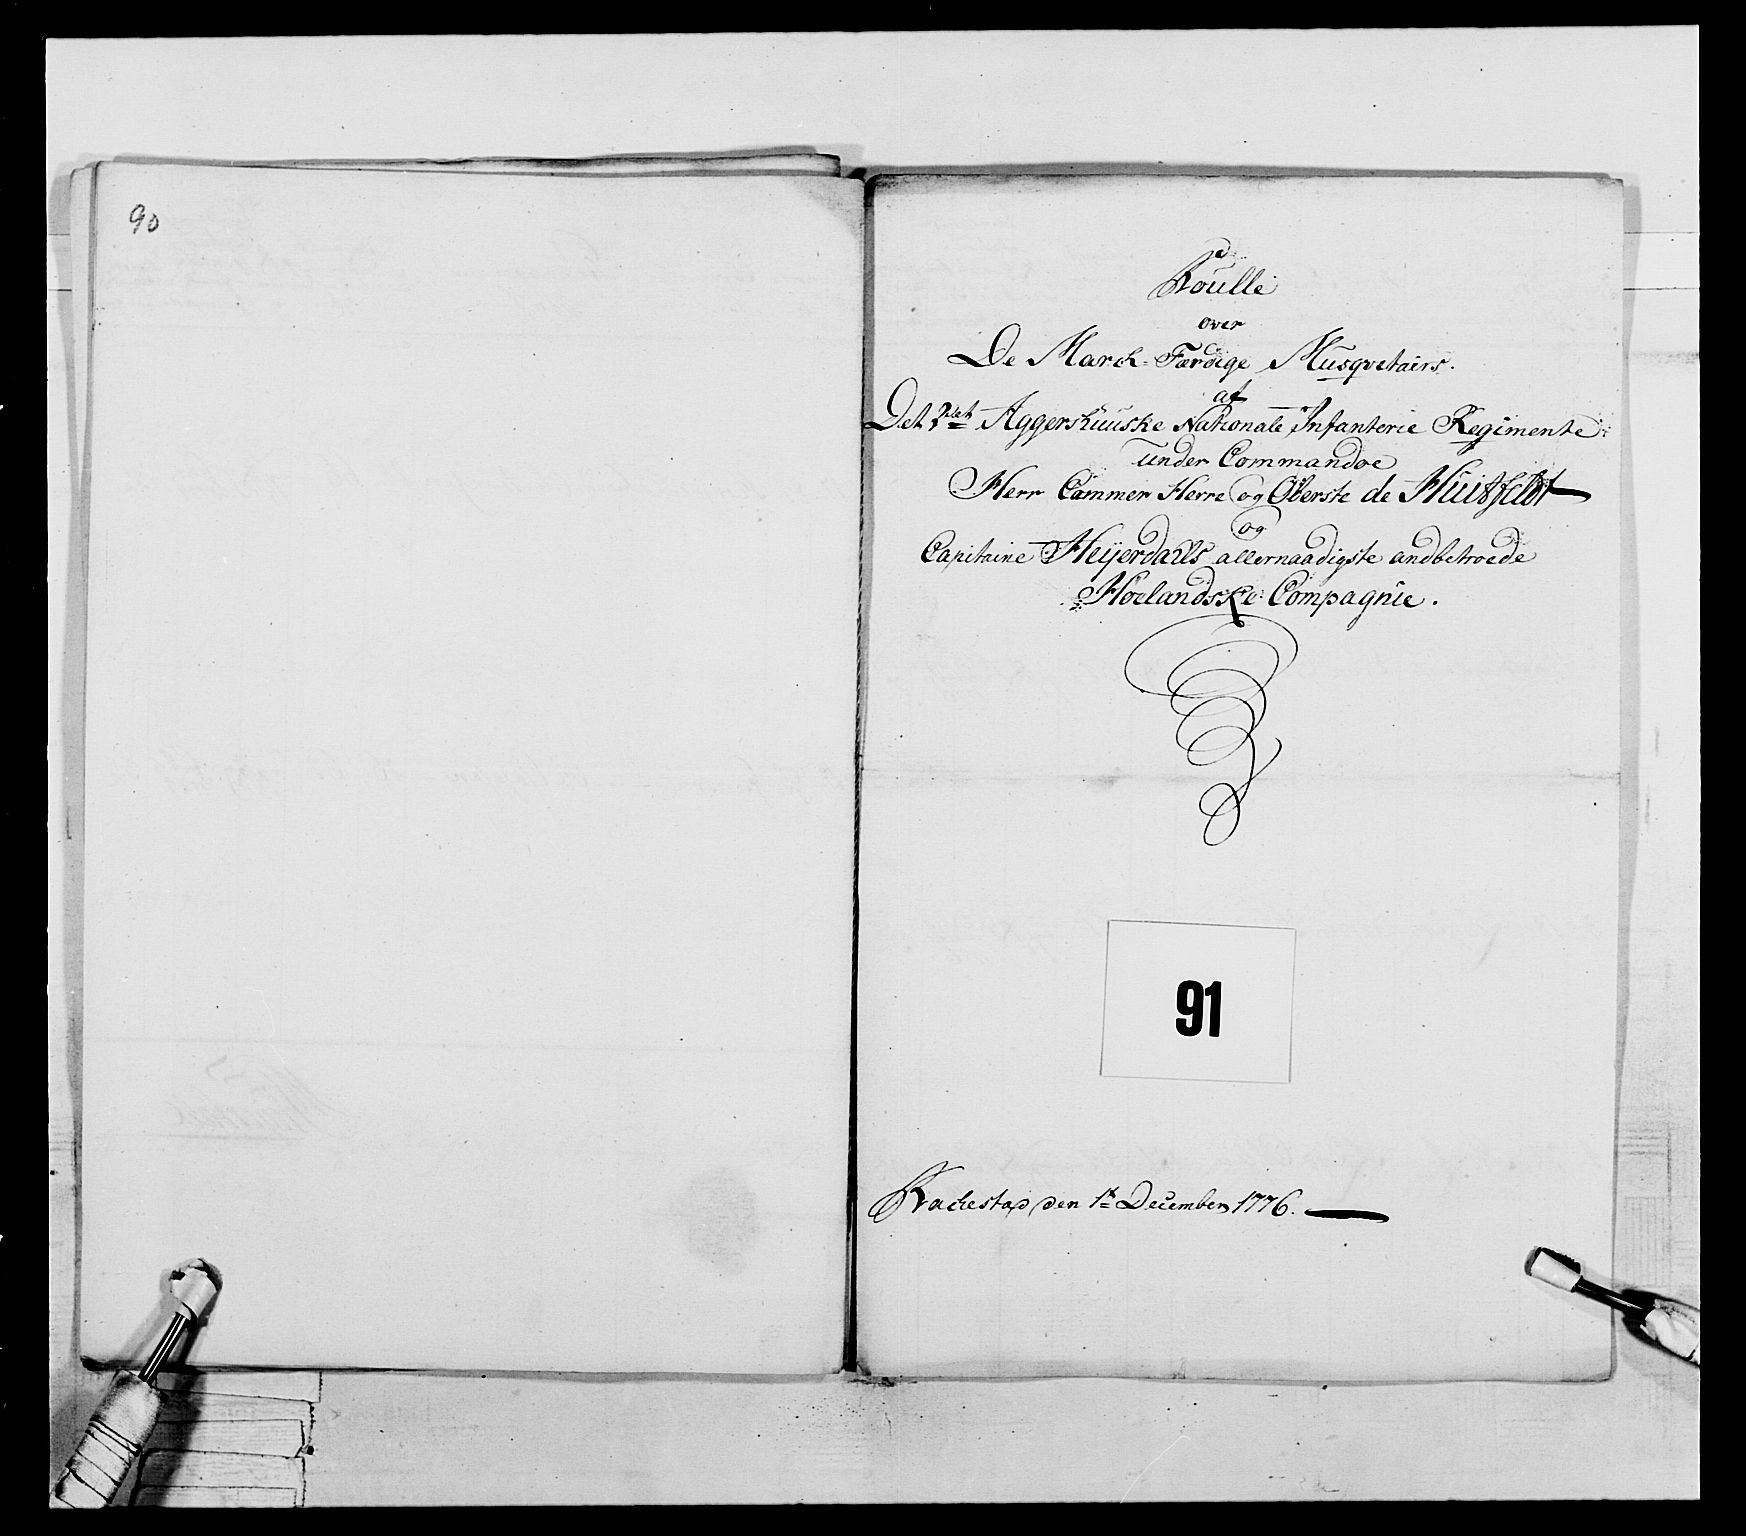 90
Roulle
over
De March-Færdige Musqvetairs.
af
Det 2det Aggershuuske Nationale Infanterie Regimente
under Commandoe
Herr Cammer Herre og Oberste de Huitfeldt
og
Capitaine Heyerdahls allernaadigste andbetroede
Hoelandske Compagnie.
91
Rackestad den 1te December 1776.